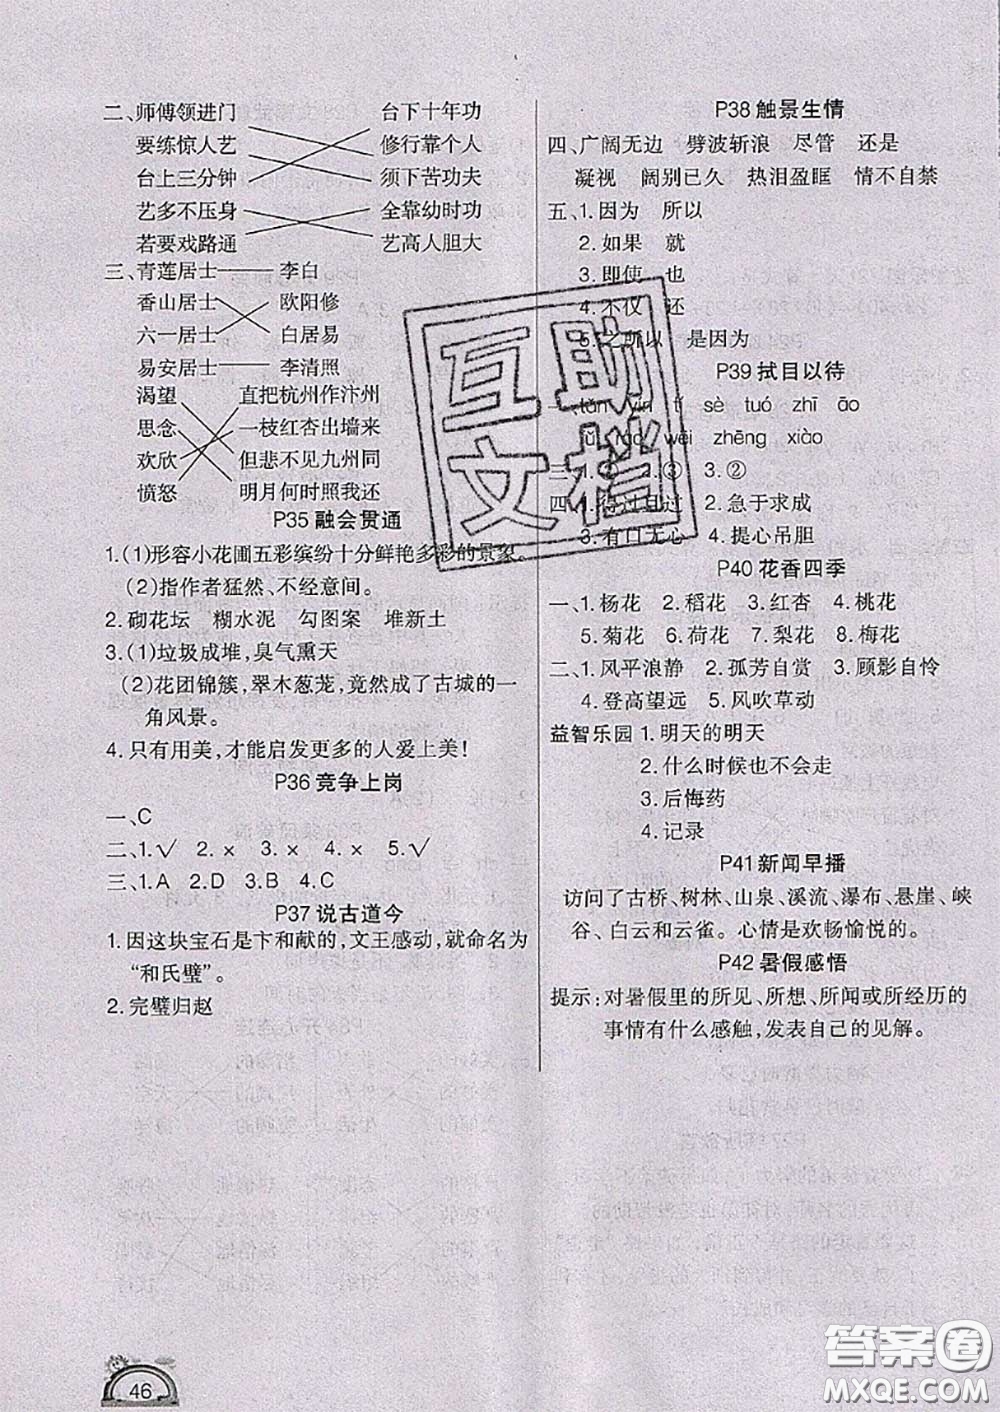 二、师傅领进门 台下十年功
要练惊人艺 修行靠个人
台上三分钟 须下苦功夫
艺多不压身 全靠幼时功
若要戏路通 艺高人胆大
三、青莲居士 李白
香山居士 欧阳修
六一居士 白居易
易安居士 李清照
渴望 直把杭州作汴州
思念 一枝红杏出墙来
欢欣 但悲不见九州同
愤怒 明月何时照我还
P35 融会贯通
1.(1)形容小花圃五彩缤纷十分鲜艳多彩的景象。
(2)指作者猛然、不经意间。
2.砌花坛 糊水泥 勾图案 堆新土
3.(1)垃圾成堆,臭气熏天
(2)花团锦簇,翠木葱茏,竟然成了古城的一
角风景。
4.只有用美,才能启发更多的人爱上美!
P36 竞争上岗
一、C
二、1.√ 2.× 3.× 4.× 5.√
三、1.A 2.D 3.B 4.C
P37 说古道今
1.因这块宝石是卞和献的,文王感动,就命名为
“和氏璧”。
2.完璧归赵
P38 触景生情
四、广阔无边 劈波斩浪 尽管 还是
凝视 阔别已久 热泪盈眶 情不自禁
五、1.因为 所以
2.如果 就
3.即使 也
4.不仅 还
5.之所以 是因为
P39 拭目以待
一、 yìn tí sè tuó zhī āo
wěi zhēng xiào
2.③ 3.②
四、1.得过且过 2.急于求成
3.有口无心 4.提心吊胆
P40 花香四季
一、1.杨花 2.稻花 3.红杏 4.桃花
5.菊花 6.荷花 7.梨花 8.梅花
二、1.风平浪静 2.孤芳自赏 3.顾影自怜
4.登高望远 5.风吹草动
益智乐园 1.明天的明天
2.什么时候也不会走
3.后悔药
4.记录
P41 新闻早播
访问了古桥、树林、山泉、溪流、瀑布、悬崖、峡
谷、白云和云雀。心情是欢畅愉悦的。
P42 暑假感悟
提示:对暑假里的所见、所想、所闻或所经历的
事情有什么感触,发表自己的见解。
互助
文档
46
答案圈
MXQE.COM